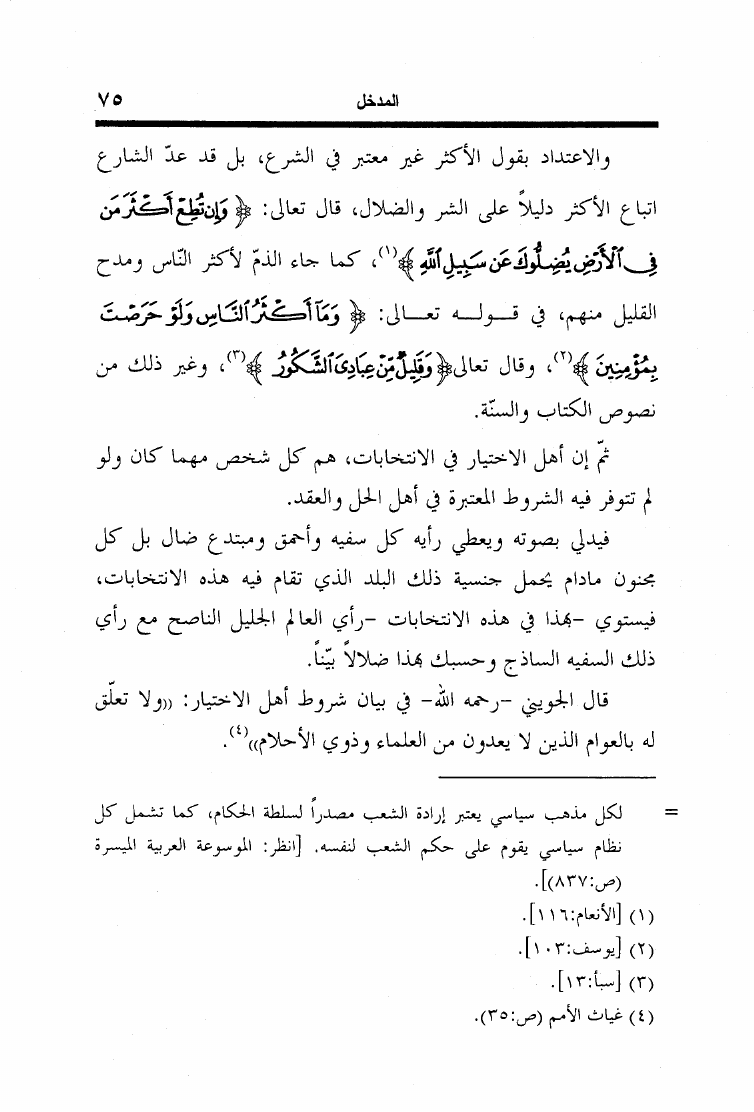 المدخل ٧٥
والاعتداد بقول الأكثر غير معتبر في الشرع، بل قد عدّ الشارع
اتباع الأكثر دليلاً على الشر والضلال، قال تعالى: ﴿ وَإِن تُطِعْ أَكْثَرَ مَن
فِى ٱلْأَرْضِ يُضِلُّوكَ عَن سَبِيلِ ٱللَّهِ ﴾(١)، كما جاء الذمّ لأكثر النّاس ومدح
القليل منهم، في قـولـه تعـالى: ﴿ وَمَآ أَكْثَرُ ٱلنَّاسِ وَلَوْ حَرَصْتَ
بِمُؤْمِنِينَ ﴾(٢)، وقال تعالى﴿ وَقَلِيلٌ مِّنْ عِبَادِىَ ٱلشَّكُورُ ﴾(٣)، وغير ذلك من
نصوص الكتاب والسنّة.
ثمّ إن أهل الاختيار في الانتخابات، هم كل شخص مهما كان ولو
لم تتوفر فيه الشروط المعتبرة في أهل الحل والعقد.
فيدلي بصوته ويعطي رأيه كل سفيه وأحمق ومبتدع ضال بل كل
مجنون مادام يحمل جنسية ذلك البلد الذي تقام فيه هذه الانتخابات،
فيستوي -بهذا في هذه الانتخابات -رأي العالم الجليل الناصح مع رأي
ذلك السفيه الساذج وحسبك بهذا ضلالاً بيّناً.
قال الجويني -رحمه الله- في بيان شروط أهل الاختيار: ((ولا تعلّق
له بالعوام الذين لا يعدون من العلماء وذوي الأحلام))(٤).
= لكل مذهب سياسي يعتبر إرادة الشعب مصدراً لسلطة الحكام، كما تشمل كل
نظام سياسي يقوم على حكم الشعب لنفسه. [انظر: الموسوعة العربية الميسرة
(ص:٨٣٧)].
(١) [الأنعام:١١٦].
(٢) [يوسف:١٠٣].
(٣) [سبأ:١٣].
(٤) غياث الأمم (ص:٣٥).